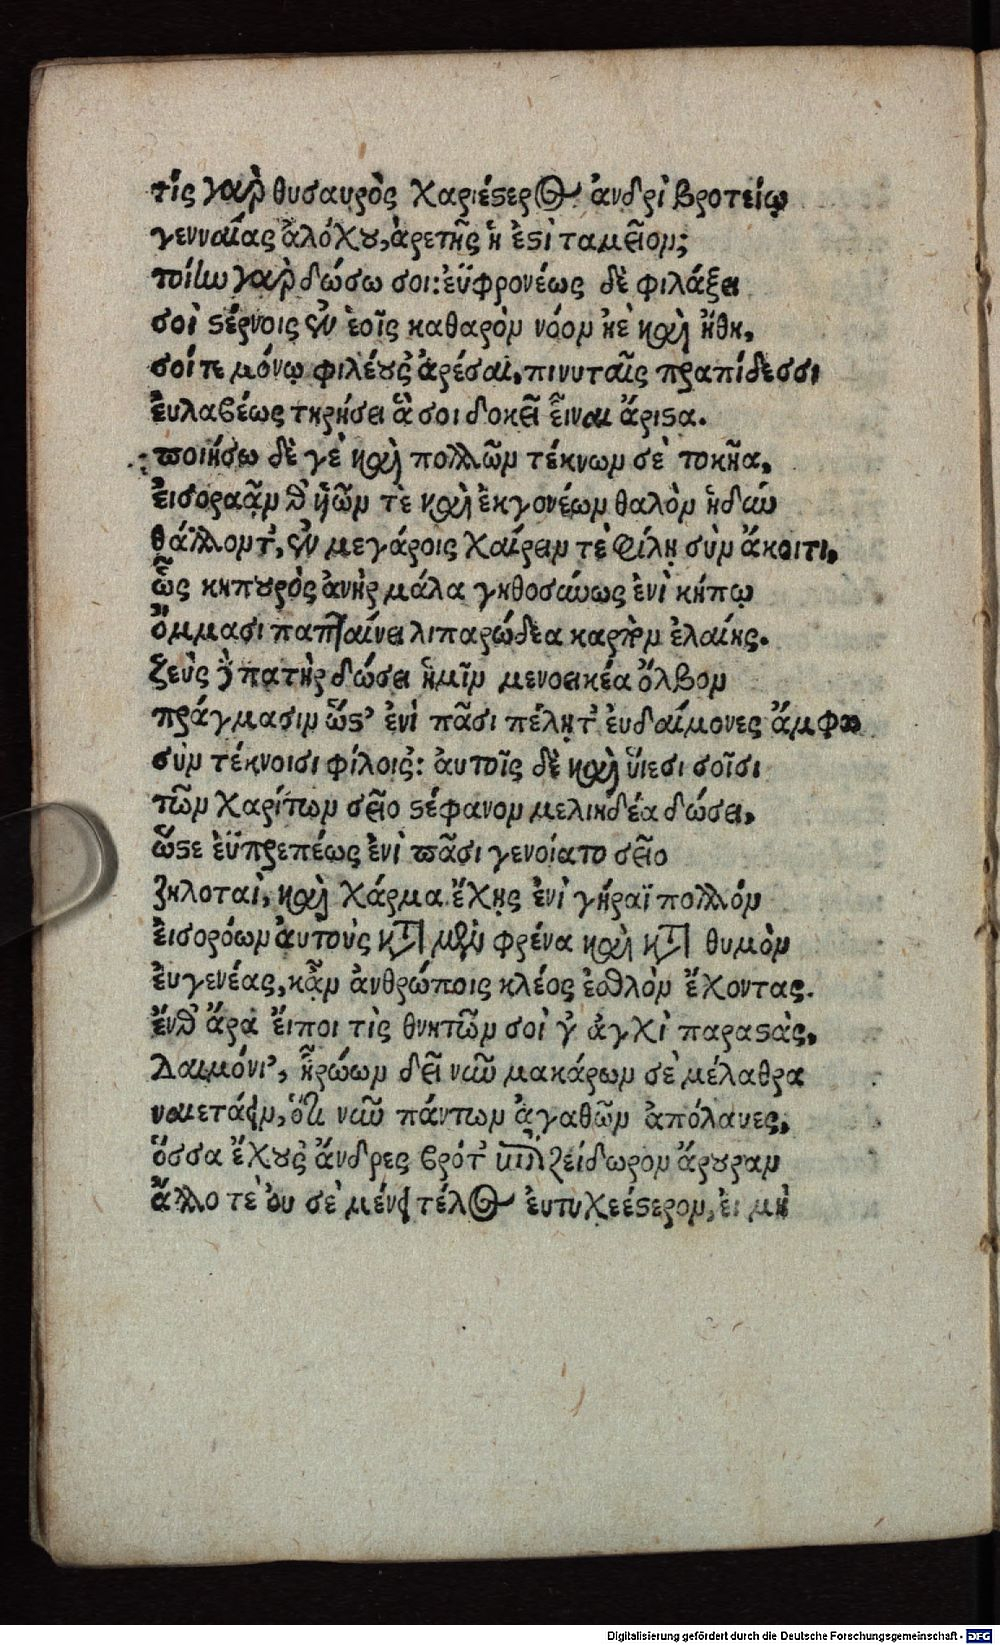 τίς γαρ θυσαυρὸς χαριέστερος ἀνδρὶ βροτείῳ
γενναίας ἀλόχου, ἀρετῆς ἢ ἐστὶ ταμεῖον;
τοίην γαρ δώσω σοι: ἐϋφρονέως δὲ φιλάξει
σοὶ στέρνοις ἐν ἑοῖς καθαρὸν νόον ἠὲ καὶ ἤθη,
σοί τε μόνῳ φιλέουσ' ἀρέσαι, πινυταῖς πραπίδεσσι
ἐυλαβέως τηρήσει ἃ σοι δοκεῖ εἶναι ἄριστα.
ποιήσω δὲ γὲ καὶ πολλῶν τέκνων σὲ τοκῆα,
εἰσοραᾷν θ' ἡῶν τὲ καὶ ἐκγονέων θαλὸν ἡδὺν
θάλλοντ', ἐν μεγάροις χαίρειν τὲ φίλῃ σὺν ἄκοιτι,
ὧς κηπουρὸς ἀνὴρ μάλα γηθοσύνως ἐνὶ κήπῳ
ὄμμασι παπταίνει λιπαρώδεα καρπὸν ἐλαίης.
ζεὺς δὲ πατὴρ δώσει ἡμῖν μενοεικέα ὄλβον
πράγμασιν ὥστ' ἐνὶ πᾶσι πέλητ' ἐυδαίμονες ἄμφω
σὺν τέκνοισι φίλοισ': ἀυτοῖς δὲ καὶ ὑίεσι σοῖσι
τῶν χαρίτων σεῖο στέφανον μελιηδέα δώσει,
ὥστε ἐϋπρεπέως ἐνὶ πᾶσι γενοίατο σεῖο
ζηλοταὶ, καὶ χάρμα ἔχῃς ἐνὶ γήραϊ πολλόν
εἰσορόων ἀυτοὺς κατὰ μὲν φρένα καὶ κατὰ θυμὸν
ἐυγενέας, κᾂν ἀνθρώποις κλέος ἐσθλὸν ἔχοντας.
ἔνθ' ἄρα ἔιποι τὶς θνητῶν σοὶ γ' ἀγχὶ παραστὰς,
Δαιμόνι', ἡρώων δεῖ νῦν μακάρων σὲ μέλαθρα
ναιετάειν, ὅτι νῦν πάντων ἀγαθῶν ἀπόλαυες,
ὅσσα ἔχουσ' ἄνδρες βρότ' ζείδωρον ἄρουραν
ἄλλο τὲ ὀυ σὲ μένει τέλος ἐυτυχεέστερον, ἐι μὴ
Digitalisierung gefördert durch die Deutsche Forschungsgemeinschaft - DFG